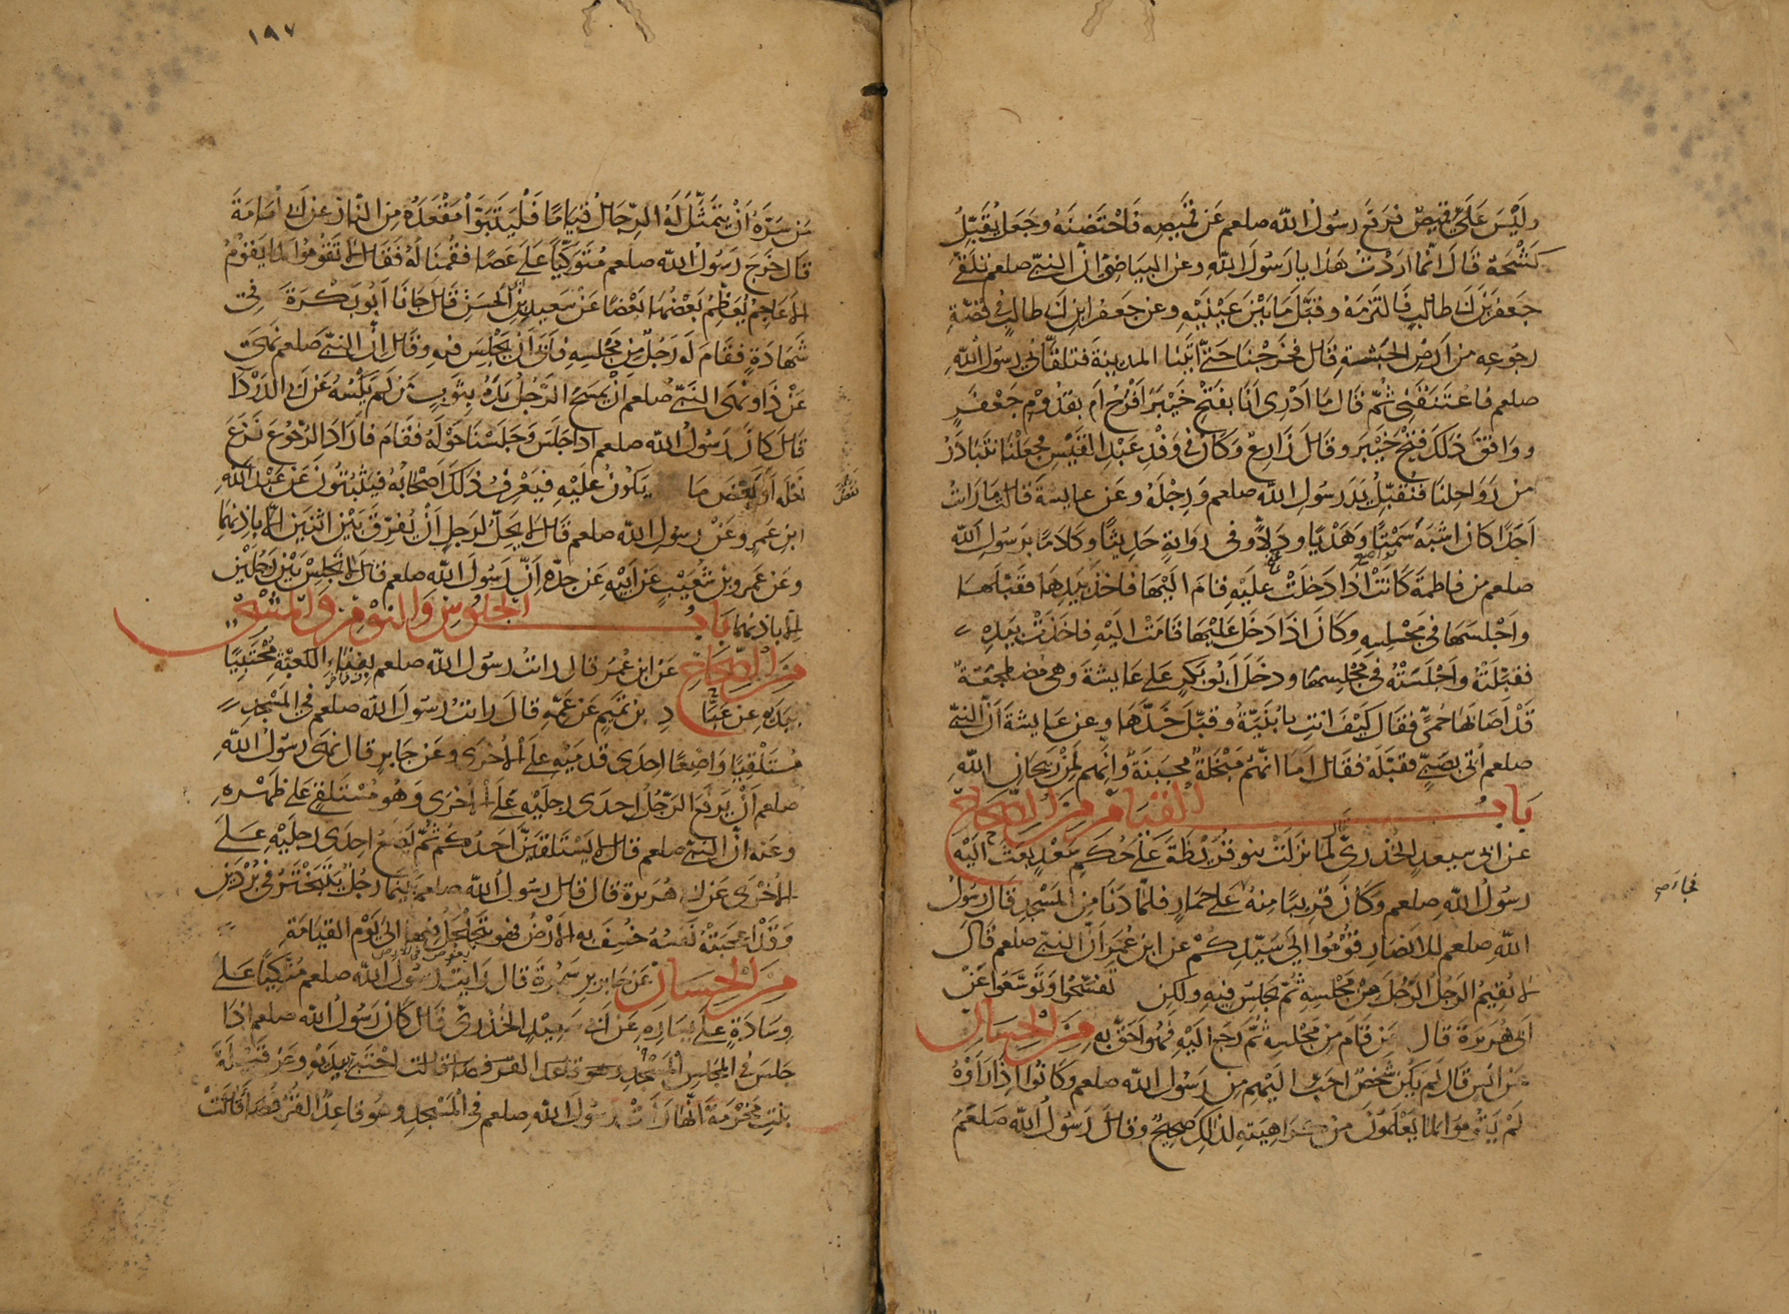 وَلَيْسَ عَلَيَّ قَمِيصٌ فَرَفَعَ رَسُولُ اللّٰه صلعم عَنْ قَمِيصِهِ فَاحْتَضَنَهُ وَجَعَلَ يُقَبِّلُ
كَشْحَهُ قَالَ انَّمَا ارَدْتُ هٰذَا يا رَسُولَ اللّٰهِ وعن البياضي انّ النبيّ صلعم تَلَقَّى
جَعْفَرَ بْنَ ابى طَالِبٍ فَالْتَزَمَهُ وقَبَّلَ مَا بَيْنَ عَيْنَيْهِ وعن جَعْفَر ابن ابى طالبٍ في قصّةِ
رجوعه من ارض الحَبَشة قال فخرجْنَا حتّى اتَيْنا المدينة فتلقّاني رسول اللّٰه
صلعم فاعتنقني ثمّ قال مَا ادْرِى انَا بفتح خَيْبَرَ افْرَحُ أم بقدُومِ جَعْفَرٍ
ووافَقَ ذٰلكَ فَتْحَ خَيْبَرَ وقال زَارعٌ وكان في وَفْدِ عَبْدِ القَيْسِ فجعَلْنَا نتبَادَرُ
من رَوَاحِلِنَا فنُقَبِّلُ يَدَ رَسُولِ اللّٰه صلعم وَرِجْلَهُ وعَن عايشة قالت مَا رَاتُ
اَحَدًا كان اشبَهَ سَمْتًا وهَدْيًا ودَلًّا وفى رِوَايةٍ حَدِيثًا وكلامًا برَسُولِ اللّٰه
صلعم من فاطمةَ كَانَتْ اذَا دَخَلَتْ علَيْهِ قامَ الَيْهَا فاخذ بِيَدِهَا فقَبّلَهَا
واجْلسَهَا فى مجْلسِهِ وكَانَ اذَا دَخَلَ عَلَيْهَا قَامَتْ الَيْهِ فاخذَتْ بيَدِهِ
فقبّلَتْهُ وأجْلَسَتْهُ فى مجْلِسِهَا ودخَلَ ابُو بَكرٍ علَى عَايشةَ وهى مضطجعةٌ
قَدْ اصَابَهَا حُمَّى فقَالَ كَيْفَ انتِ يا بُنَيَّةُ وقبّلَ خَدَّهَا وعن عَايشةَ اَنَّ النبيّ
صلعم أتى بصَبيٍّ فقبّلَهُ فقَالَ امَا انهُمْ مَبْخَلَةٌ مَجْبَنَةٌ وانّهم لمِنْ رَيْحَانِ اللّٰهِ
بَابُ القيَام مِنَ الصِّحَاحِ
عن ابى سعيدٍ الخُدرىّ لمّا نزَلَتْ بنو قُرَيْظَةَ علَى حُكمِ سَعْدٍ بعَثَ الَيْهِ
رسُولُ اللّٰه صلعم وكانَ قرِيبًا مِنهُ علَى حِمَارٍ فلمّا دَنَا مِنَ المَسْجِدِ قالَ رسُولُ
اللّٰهِ صلعم للانصَارِ قُوْمُوا اِلَى سَيّدِكُمْ عن ابنِ عُمَرَ اَنَّ النبيّ صلعم قالَ
لا يُقِيمُ الرَجُلُ الرّجُلَ مِنْ مَجْلسِهِ ثُمّ يَجْلِسُ فيهِ ولٰكِن تفَسّحُوا وَتَوَسَّعُوا عَنْ
اَبى هُرَيرَةَ قال مَن قَامَ مِن مَجْلسِهِ ثُمَّ رَجَعَ اِلَيْهِ فهُوَ احَقّ بِهِ مِنَ الحِسَانِ
عَن انَسٍ قالَ لَمْ يَكُنْ شَخْصٌ احَبَّ الَيْهِم مِن رَسُولِ اللّٰه صلعم وكَانُوا اِذَا رَاَوْهُ
لَمْ يَقُومُوا لِمَا يَعْلَمُونَ مِنْ كَرَاهِيَتِهِ لذٰلِكَ صَحِيحٌ وقالَ رَسُولُ اللّٰه صَلعَمْ
فجاء صح
١٩٧
مَن سَرَّهُ اَنْ يَتَمَثَّلَ لَهُ الرِّجَالُ قِيَامًا فَلْيَتَبَوَّأْ مَقْعَدَهُ مِنَ النّارِ عن ابى أمَامَةَ
قال خَرَجَ رَسُولُ اللّٰه صلعم مُتَوَكِّيًا علَى عَصًا فقُمْنَا لَهُ فقَالَ لا تَقُومُوا كمَا يَقُوْمُ
الاَعَاجِمُ يُعَظِّمُ بَعْضُهَا بَعْضًا عَنْ سَعيد بن ابى الحَسَن قَالَ جَانَا اَبُو بَكْرَةَ فى
شَهَادَةٍ فقَامَ لَه رَجُلٌ مِن مَجْلِسِهِ فاَبَى اَنْ يَجْلِسَ فيهِ وقَالَ انّ النبيّ صلعم نَهَى
عَنْ ذَا ونَهَى النَّبيّ صلعم انْ يَمسَحَ الرَّجُلُ يَدَهُ بِثَوْبِ مَن لَم يَكْسُهُ عَن ابى الدَرْدَا
قَالَ كَانَ رَسُولُ اللّٰه صلعم اذا جَلَسَ وَجَلَسْنَا حَوْلَهُ فقَامَ فاَرَادَ الرّجُوعَ نَزَعَ
نَعْلَهُ أوْ بَعْضَ مَا يَكُونُ عَلَيْهِ فيَعْرِفُ ذٰلكَ اَصْحَابُهُ فيَثْبُتُونَ عَن عَبْدِ اللّٰه
ابنِ عَمرٍو عَنْ رسولِ اللّٰه صلعم قَالَ لا يَحِلّ لرَجلٍ اَنْ يُفَرّقَ بَيْنَ اثنَينِ الّا باذنِهِمَا
وعَن عَمرِو بن شُعَيْبٍ عن اَبيْهِ عن جدّه اَنّ رَسُولَ اللّٰه صلعم قالَ لا تَجْلِسْ بَيْنَ رَجُلَيْنِ
الّا باذنهِمَا بَابُ الجُلُوسِ وَالنَّوْمِ وَالْمَشْىِ
مِنَ الصِّحَاحِ عَن ابنِ عُمَرَ قال رَاَتُ رسُولَ اللّٰه صلعم بفِنَاءِ الكَعْبَةِ مُحْتَبِيًا
بِيَدِهِ عن عَبَّا دِ بن تَمِيمٍ عن عَمّهِ وقال رَاتُ رسُولَ اللّٰه صلعم في المَسْجِدِ
مُسْتَلْقِيًا وَاضِعًا احِدَى قدمَيْهِ علَى الأُخْرَى وعَن جَابرٍ قال نَهَى رسُولُ اللّٰه
صلعم اَنْ يَرفَعَ الرّجُلُ احِدَى رجلَيْهِ علَى الأُخْرَى وَهُو مُسْتَلْقٍ علَى ظَهْرِهِ
وعَنه انّ النبيّ صلعم قالَ لا يَسْتَلقِيَنَّ اَحَدُكُم ثُمّ يَضَعُ احِدَى رجلَيْهِ علَى
الأُخْرَى عَن ابى هُرَيرةَ قال قال رسُولُ اللّٰه صلعم بَيْنَمَا رجُلٌ يَتَبَخْتَرُ فى بُرْدَيْنِ
وَقَدْ اعْجَبَتْهُ نَفْسُهُ خُسِفَ بِه الاَرْضُ فهو يَتَجَلْجَلُ فيها الى يَوْمِ القيَامَةِ
مِنَ الحِسَانِ عَن جَابر بنِ سَمُرَةَ قال رَايتُ رسُولَ اللّٰه صلعم متّكِيًا علَى
وِسَادَةٍ علَى يَسَارِهِ عَن ابى سَعِيْدٍ الخُدرىّ قَالَ كانَ رَسُولُ اللّٰه صلعم اذَا
جلسَ فى المَجْلسِ احْتَبَى بِيَدَيْهِ وعَنْ قَيْلَةَ
بنْتِ مَخْرَمَةَ انّهَا رَاَتْ رَسُولَ اللّٰهِ صلعم فى المَسْجِدِ وهُو قاعِدٌ القُرْفُصَا قَالَتْ